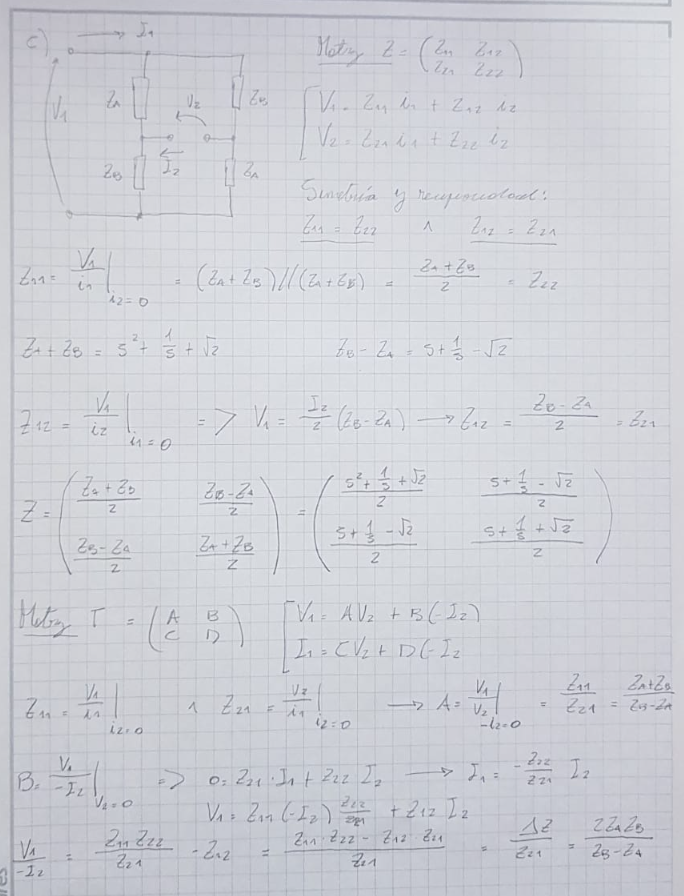 c) I₁
Matriz Z = (Z₁₁ Z₁₂
Z₂₁ Z₂₂)
Z_A V₂ Z_B
V₁
V₁ = Z₁₁ i₁ + Z₁₂ i₂
V₂ = Z₂₁ i₁ + Z₂₂ i₂
Z_B I₂ Z_A
Simetría y reciprocidad:
Z₁₁ = Z₂₂ ∧ Z₁₂ = Z₂₁
Z₁₁ = V₁/i₁ |i₂=0 = (Z_A + Z_B)//(Z_A + Z_B) = (Z_A + Z_B)/2 = Z₂₂
Z_A + Z_B = s² + 1/s + √2 Z_B - Z_A = s + 1/s - √2
Z₁₂ = V₁/i₂ |i₁=0 => V₁ = I₂/2 (Z_B - Z_A) → Z₁₂ = (Z_B - Z_A)/2 = Z₂₁
Z = ((Z_A + Z_B)/2 (Z_B - Z_A)/2 = ((s² + 1/s + √2)/2 (s + 1/s - √2)/2
(Z_B - Z_A)/2 (Z_A + Z_B)/2) (s + 1/s - √2)/2 (s + 1/s + √2)/2)
Matriz T = (A B V₁ = A V₂ + B(-I₂)
C D) I₁ = C V₂ + D(-I₂
Z₁₁ = V₁/i₁ |i₂=0 ∧ Z₂₁ = V₂/i₁ |i₂=0 → A = V₁/V₂ |-i₂=0 = Z₁₁/Z₂₁ = (Z_A + Z_B)/(Z_B - Z_A)
B = V₁/-I₂ |V₂=0 => 0 = Z₂₁ · I₁ + Z₂₂ I₂ → I₁ = -Z₂₂/Z₂₁ I₂
V₁ = Z₁₁ (-I₂) Z₂₂/Z₂₁ + Z₁₂ I₂
V₁/-I₂ = Z₁₁ Z₂₂/Z₂₁ - Z₁₂ = (Z₁₁ · Z₂₂ - Z₁₂ · Z₂₁)/Z₂₁ = ΔZ/Z₂₁ = 2Z_A Z_B/(Z_B - Z_A)